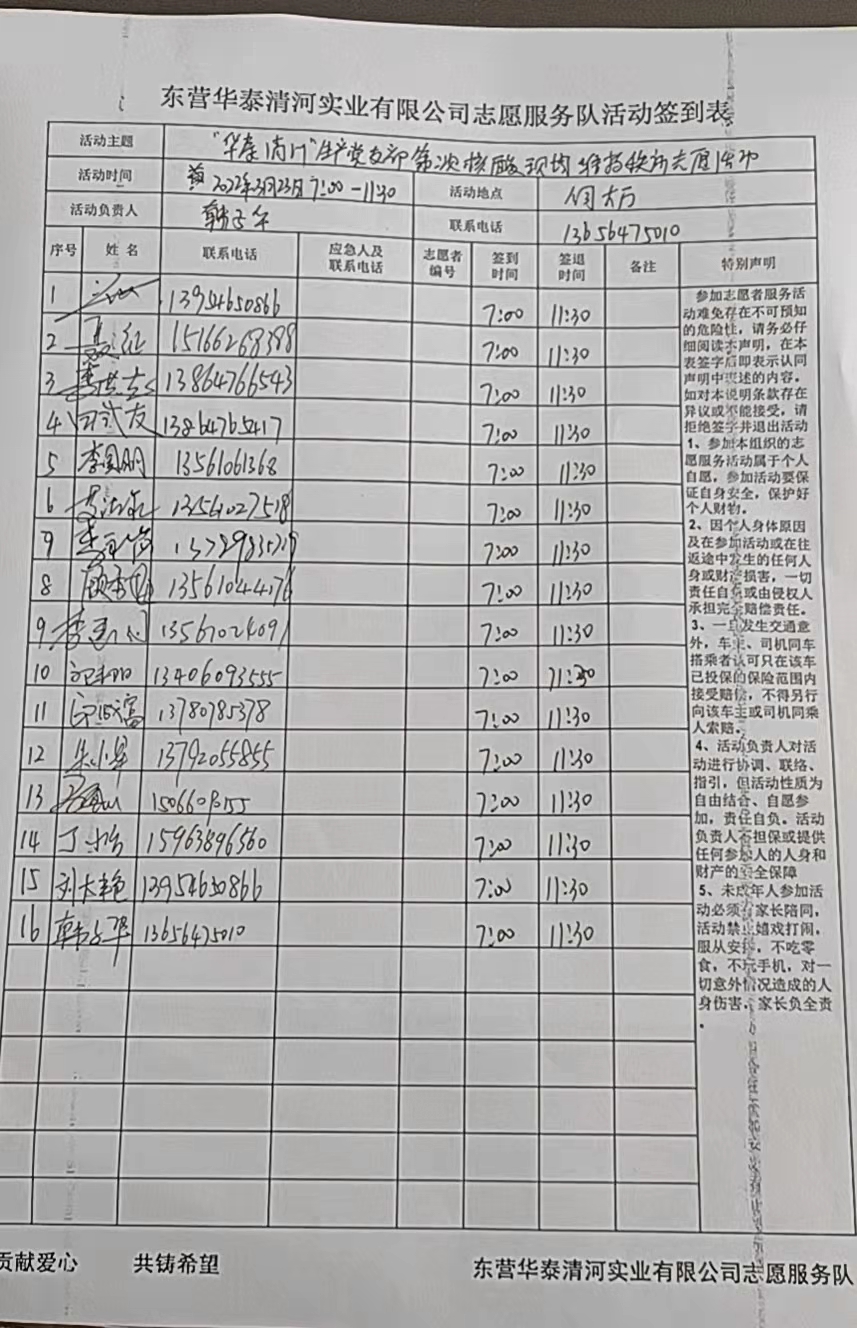 东营华泰清河实业有限公司志愿服务队活动签到表
活动主题 生产党支部 核酸现场维持秩序志愿活动
活动时间 2022年3月23日7:00-11:30 活动地点
活动负责人 联系电话 13656475010
序号 姓名 联系电话 应急人及联系电话 志愿者编号 签到时间 签退时间 备注 特别声明
1 13954650866 7:00 11:30
2 15166268388 7:00 11:30
3 13864766543 7:00 11:30
4 田武友 7:00 11:30
5 李国朋 13561061368 7:00 11:30
6 13561027518 7:00 11:30
7:00 11:30
8 13561044476 7:00 11:30
9 7:00 11:30
10 13406093555 7:00 11:30
11 13780785378 7:00 11:30
12 朱小军 13792055855 7:00 11:30
13 7:00 11:30
14 15963896560 7:00 11:30
15 刘大艳 13954630866 7:00 11:30
16 13656475010 7:00 11:30
参加志愿者服务活
动难免存在不可预知
的危险性，请务必仔
细阅读本声明，在本
表签字后即表示认同
声明中表述的内容。
如对本说明条款存在
异议或不能接受，请
拒绝签字并退出活动
1、参加本组织的志
愿服务活动属于个人
自愿，参加活动要保
证自身安全，保护好
个人财物。
2、因个人身体原因
及在参加活动或在往
返途中发生的任何人
身或财产损害，一切
责任自负或由侵权人
承担完全赔偿责任。
3、一旦发生交通意
外，车主、司机同车
搭乘者认可只在该车
已投保的保险范围内
接受赔偿，不得另行
向该车主或司机同乘
人索赔。
4、活动负责人对活
动进行协调、联络、
指引，但活动性质为
自由结合、自愿参
加，责任自负。活动
负责人不担保或提供
任何参加人的人身和
财产的安全保障
5、未成年人参加活
动必须有家长陪同，
活动禁止嬉戏打闹，
服从安排，不吃零
食，不玩手机，对一
切意外情况造成的人
身伤害，家长负全责
。
贡献爱心 共铸希望 东营华泰清河实业有限公司志愿服务队